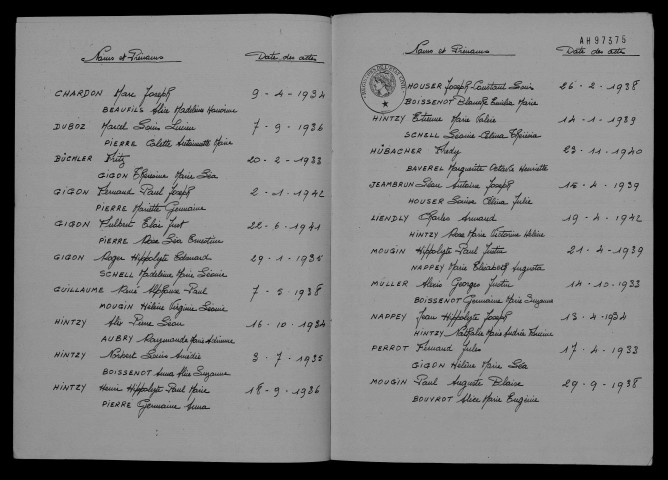 Noms et Prénoms Date des actes
CHARDON Marc Joseph 9-4-1934
BEAUFILS Alice Madeleine
DUBOZ Marcel Louis Lucien 7-9-1936
PIERRE Colette Antoinette Marie
BÜCHLER Fritz 20-2-1933
GIGON Thérésine Marie Léa
GIGON Fernand Paul Joseph 2-1-1942
PIERRE Mariette Germaine
GIGON Philbert Eloi Just 22-6-1941
PIERRE Rose Léa Ernestine
GIGON Roger Hippolyte Edouard 29-1-1935
SCHELL Madeleine Marie Léonie
GUILLAUME René Alphonse Paul 7-5-1938
MOUGIN Hélène Virginie Léonie
HINTZY Alix Pierre Léon 16-10-1934
AUBRY Raymonde Marie Adrienne
HINTZY Norbert Louis Amédée 3-7-1935
BOISSENOT Anna Alice Suzanne
HINTZY Henri Hippolyte Paul Marie 18-9-1936
PIERRE Germaine Anna
AH 97375
Noms et Prénoms Date des actes
HOUSER Joseph Constant Louis 26-2-1938
BOISSENOT Blanche Emilia Marie
HINTZY Etienne Marie Valère 14-1-1939
SCHELL Léonie Célina Thérésia
HÜBACHER Fredy 23-11-1940
BAVEREL Marguerite Octavie Henriette
JEAMBRUN Léon Antoine Joseph 15-4-1939
HOUSER Louisa Célina Julie
LIENDLY Charles Armand 19-4-1942
HINTZY Rose Marie Victorine Hélène
MOUGIN Hippolyte Paul Justin 21-4-1939
NAPPEY Marie Elisabeth Augusta
MÜLLER Alexis Georges Justin 14-10-1933
BOISSENOT Germaine Marie Suzanne
NAPPEY Jean Hippolyte Joseph 13-4-1934
HINTZY Nathalie Marie Andrée
PERROT Fernand Jules 17-4-1933
GIGON Hélène Marie Léa
MOUGIN Paul Auguste Blaise 29-9-1938
BOUVROT Alice Marie Eugénie